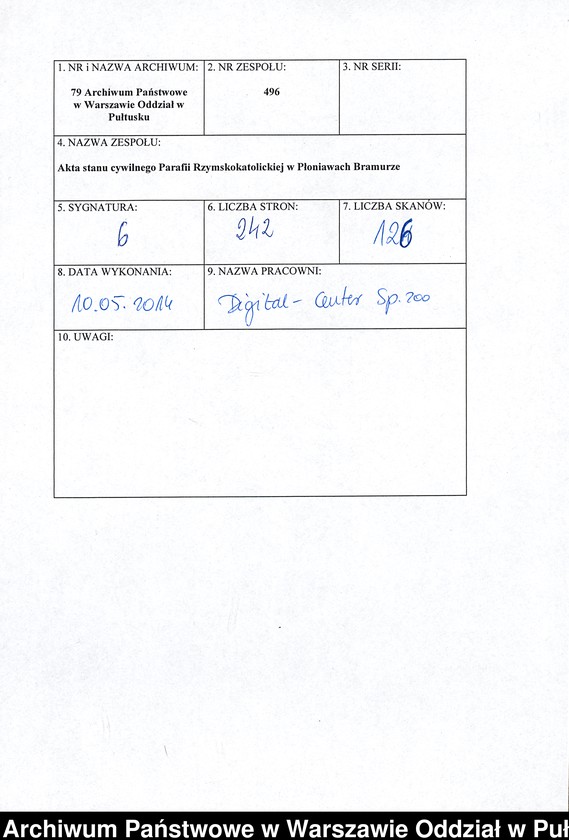 1. NR i NAZWA ARCHIWUM:
79 Archiwum Państwowe
w Warszawie Oddział w
Pułtusku
2. NR ZESPOŁU:
496
3. NR SERII:
4. NAZWA ZESPOŁU:
Akta stanu cywilnego Parafii Rzymskokatolickiej w Płoniawach Bramurze
5. SYGNATURA:
6
6. LICZBA STRON:
242
7. LICZBA SKANÓW:
126
8. DATA WYKONANIA:
10.05.2014
9. NAZWA PRACOWNI:
Digital-Center Sp. zoo
10. UWAGI:
Archiwum Państwowe w Warszawie Oddział w Puł